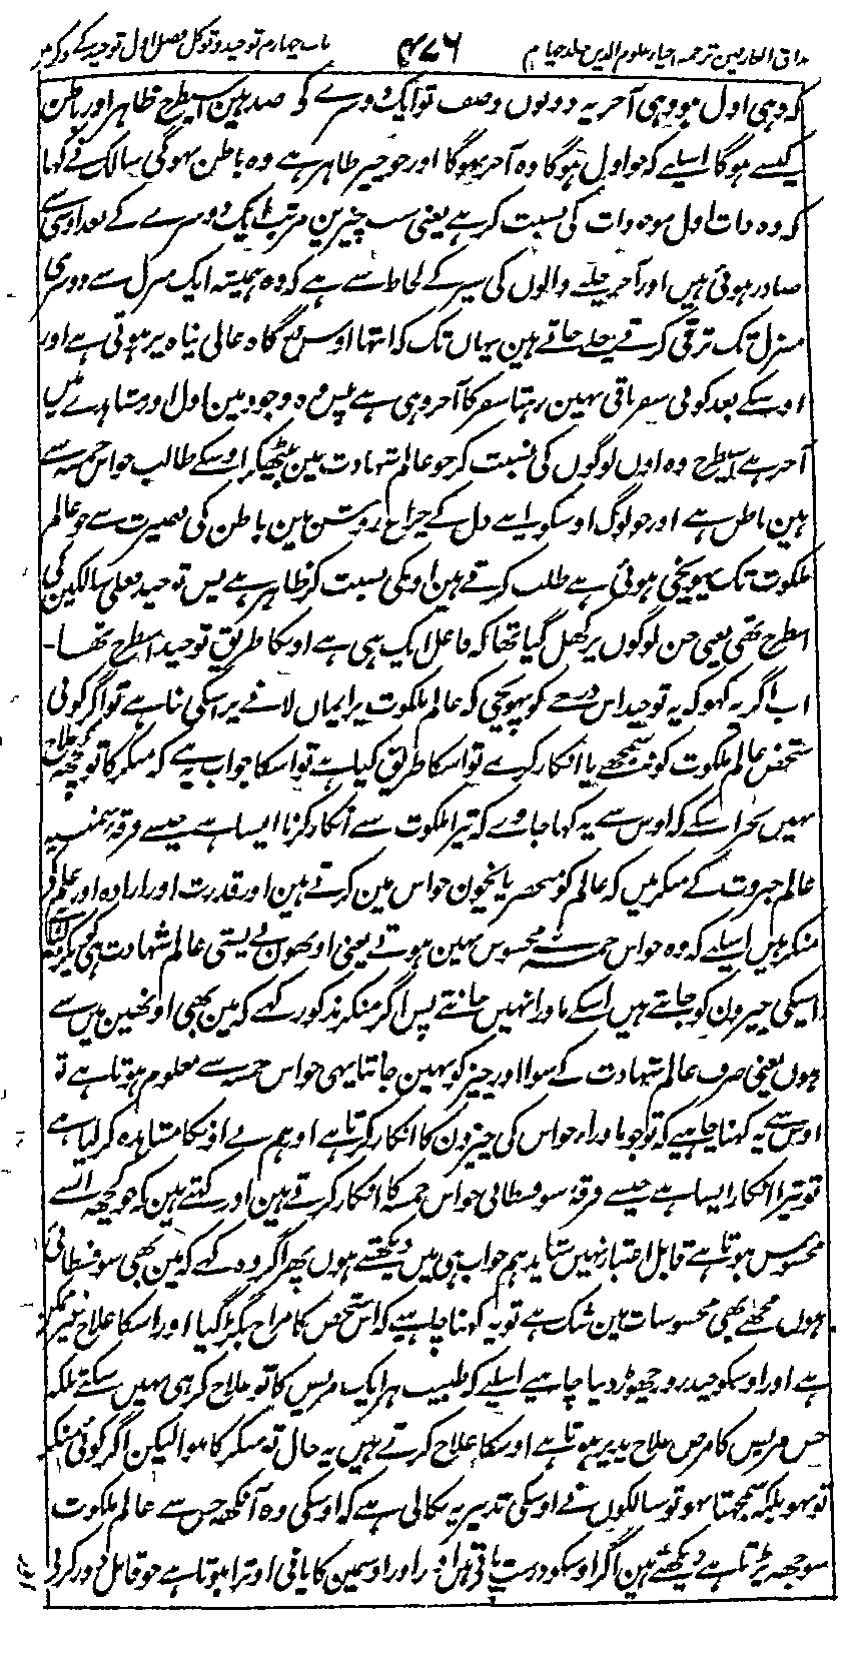 مذاق العارفین ترجمہ احیاء علوم الدین جلد چہارم
۴۷۶
باب چہارم توحید و توکل فصل اول توحید کے ذکر میں
کہ وہی اول ہو وہی آخر یہ دونوں وصف تو ایک دوسرے کی ضد ہین اسیطرح ظاہر اور باطن
کیسے ہوگا اسلیے کہ جو اول ہوگا وہ آخر نہوگا اور جو چیز ظاہر ہے وہ باطن نہوگی سالک نے کہا
کہ وہ ذات اول موجودات کی نسبت کر ہے یعنی سب چیزین مرتب ایک دوسرے کے بعد اوسی سے
صادر ہوئی ہیں اور آخر چلنے والوں کی سیر کے لحاظ سے ہے کہ وہ ہمیشہ ایک منزل سے دوسری
منزل تک ترقی کرتے چلے جاتے ہین یہاں تک کہ انتہا اوس درگاہ عالی پناہ پر ہوتی ہے اور
اوسکے بعد کوئی سفر باقی نہین رہتا سفر کا آخر وہی ہے پس وہ وجود مین اول اور مشاہدے میں
آخر ہے اسیطرح وہ اون لوگوں کی نسبت کر جو عالم شہادت مین بیٹھکر اوسکے طالب حواس خمسہ سے
ہین باطن ہے اور جو لوگ اوسکو اپنے دل کے چراغ روشن مین باطن کی بصیرت سے جو عالم
ملکوت تک پہونچی ہوئی ہے طلب کرتے ہین اونکی نسبت کر ظاہر ہے پس توحید فعلی سالکین کی
اسطرح تھی یعنی جن لوگوں پر کھل گیا تھا کہ فاعل ایک ہی ہے اونکا طریق توحید اسطرح تھا۔
اب اگر یہ کہو کہ یہ توحید اس درجے کو پہونچی کہ عالم ملکوت پر ایمان لانے پر اسکی بنا ہے تو اگر کوئی
شخص عالم ملکوت کو نہ سمجھے یا انکار کرے تو اسکا طریق کیا ہے تو اسکا جواب یہ ہے کہ منکر کا تو کچھ علاج
نہیں بجز اسکے کہ اوس سے یہ کہا جاوے کہ تیرا ملکوت سے انکار کرنا ایسا ہے جیسے فرقہ سمنیہ
عالم جبروت کے منکر ہیں کہ عالم کو منحصر پانچون حواس مین کرتے ہین اور قدرت اور ارادہ اور علم کے
منکر ہیں اسلیے کہ وہ حواس خمسہ سے محسوس نہین ہوتے یعنی اونھون نے پستی عالم شہادت ہی کی پکڑی
اسکی چیزون کو جانتے ہیں اسکے ماورا نہیں مانتے پس اگر منکر مذکور کہے کہ مین بھی اونھین میں سے
ہوں یعنی صرف عالم شہادت کے سوا اور چیز کو نہین جانتا یہی حواس خمسہ سے معلوم ہوتا ہے تو
اوس سے یہ کہنا چاہیے کہ تو جو ماوراء حواس کی چیزون کا انکار کرتا ہے اور ہم نے اونکا مشاہدہ کر لیا ہے
تو تیرا انکار ایسا ہے جیسے فرقہ سوفسطائی حواس خمسہ کا انکار کرتے ہین اور کہتے ہین کہ جو کچھ اُنسے
محسوس ہوتا ہے قابل اعتبار نہیں شاید ہم خواب ہی میں دیکھتے ہوں پھر اگر وہ کہے کہ مین بھی سوفسطائی
ہوں مجھے بھی محسوسات مین شک ہے تو یہ کہنا چاہیے کہ اس شخص کا مزاج بگڑ گیا اور اسکا علاج غیر ممکن
ہے اور اوسکو چندروز چھوڑ دینا چاہیے اسلیے کہ طبیب ہر ایک مریض کا تو علاج کر ہی نہیں سکتے بلکہ
جس مریض کا مرض علاج پذیر ہوتا ہے اوسکا علاج کرتے ہیں یہ حال تو منکر کا ہوا لیکن اگر کوئی منکر
تو نہو بلکہ نہ سمجھتا ہو تو سالکوں نے اوسکی تدبیر یہ نکالی ہے کہ اوسکی وہ آنکھ جس سے عالم ملکوت
سوجھ پڑتا ہے دیکھتے ہین اگر اوسکو درست پاتے ہیں اور اوسمین کا پانی اوترا ہوتا ہے جو قابل دور کرنے